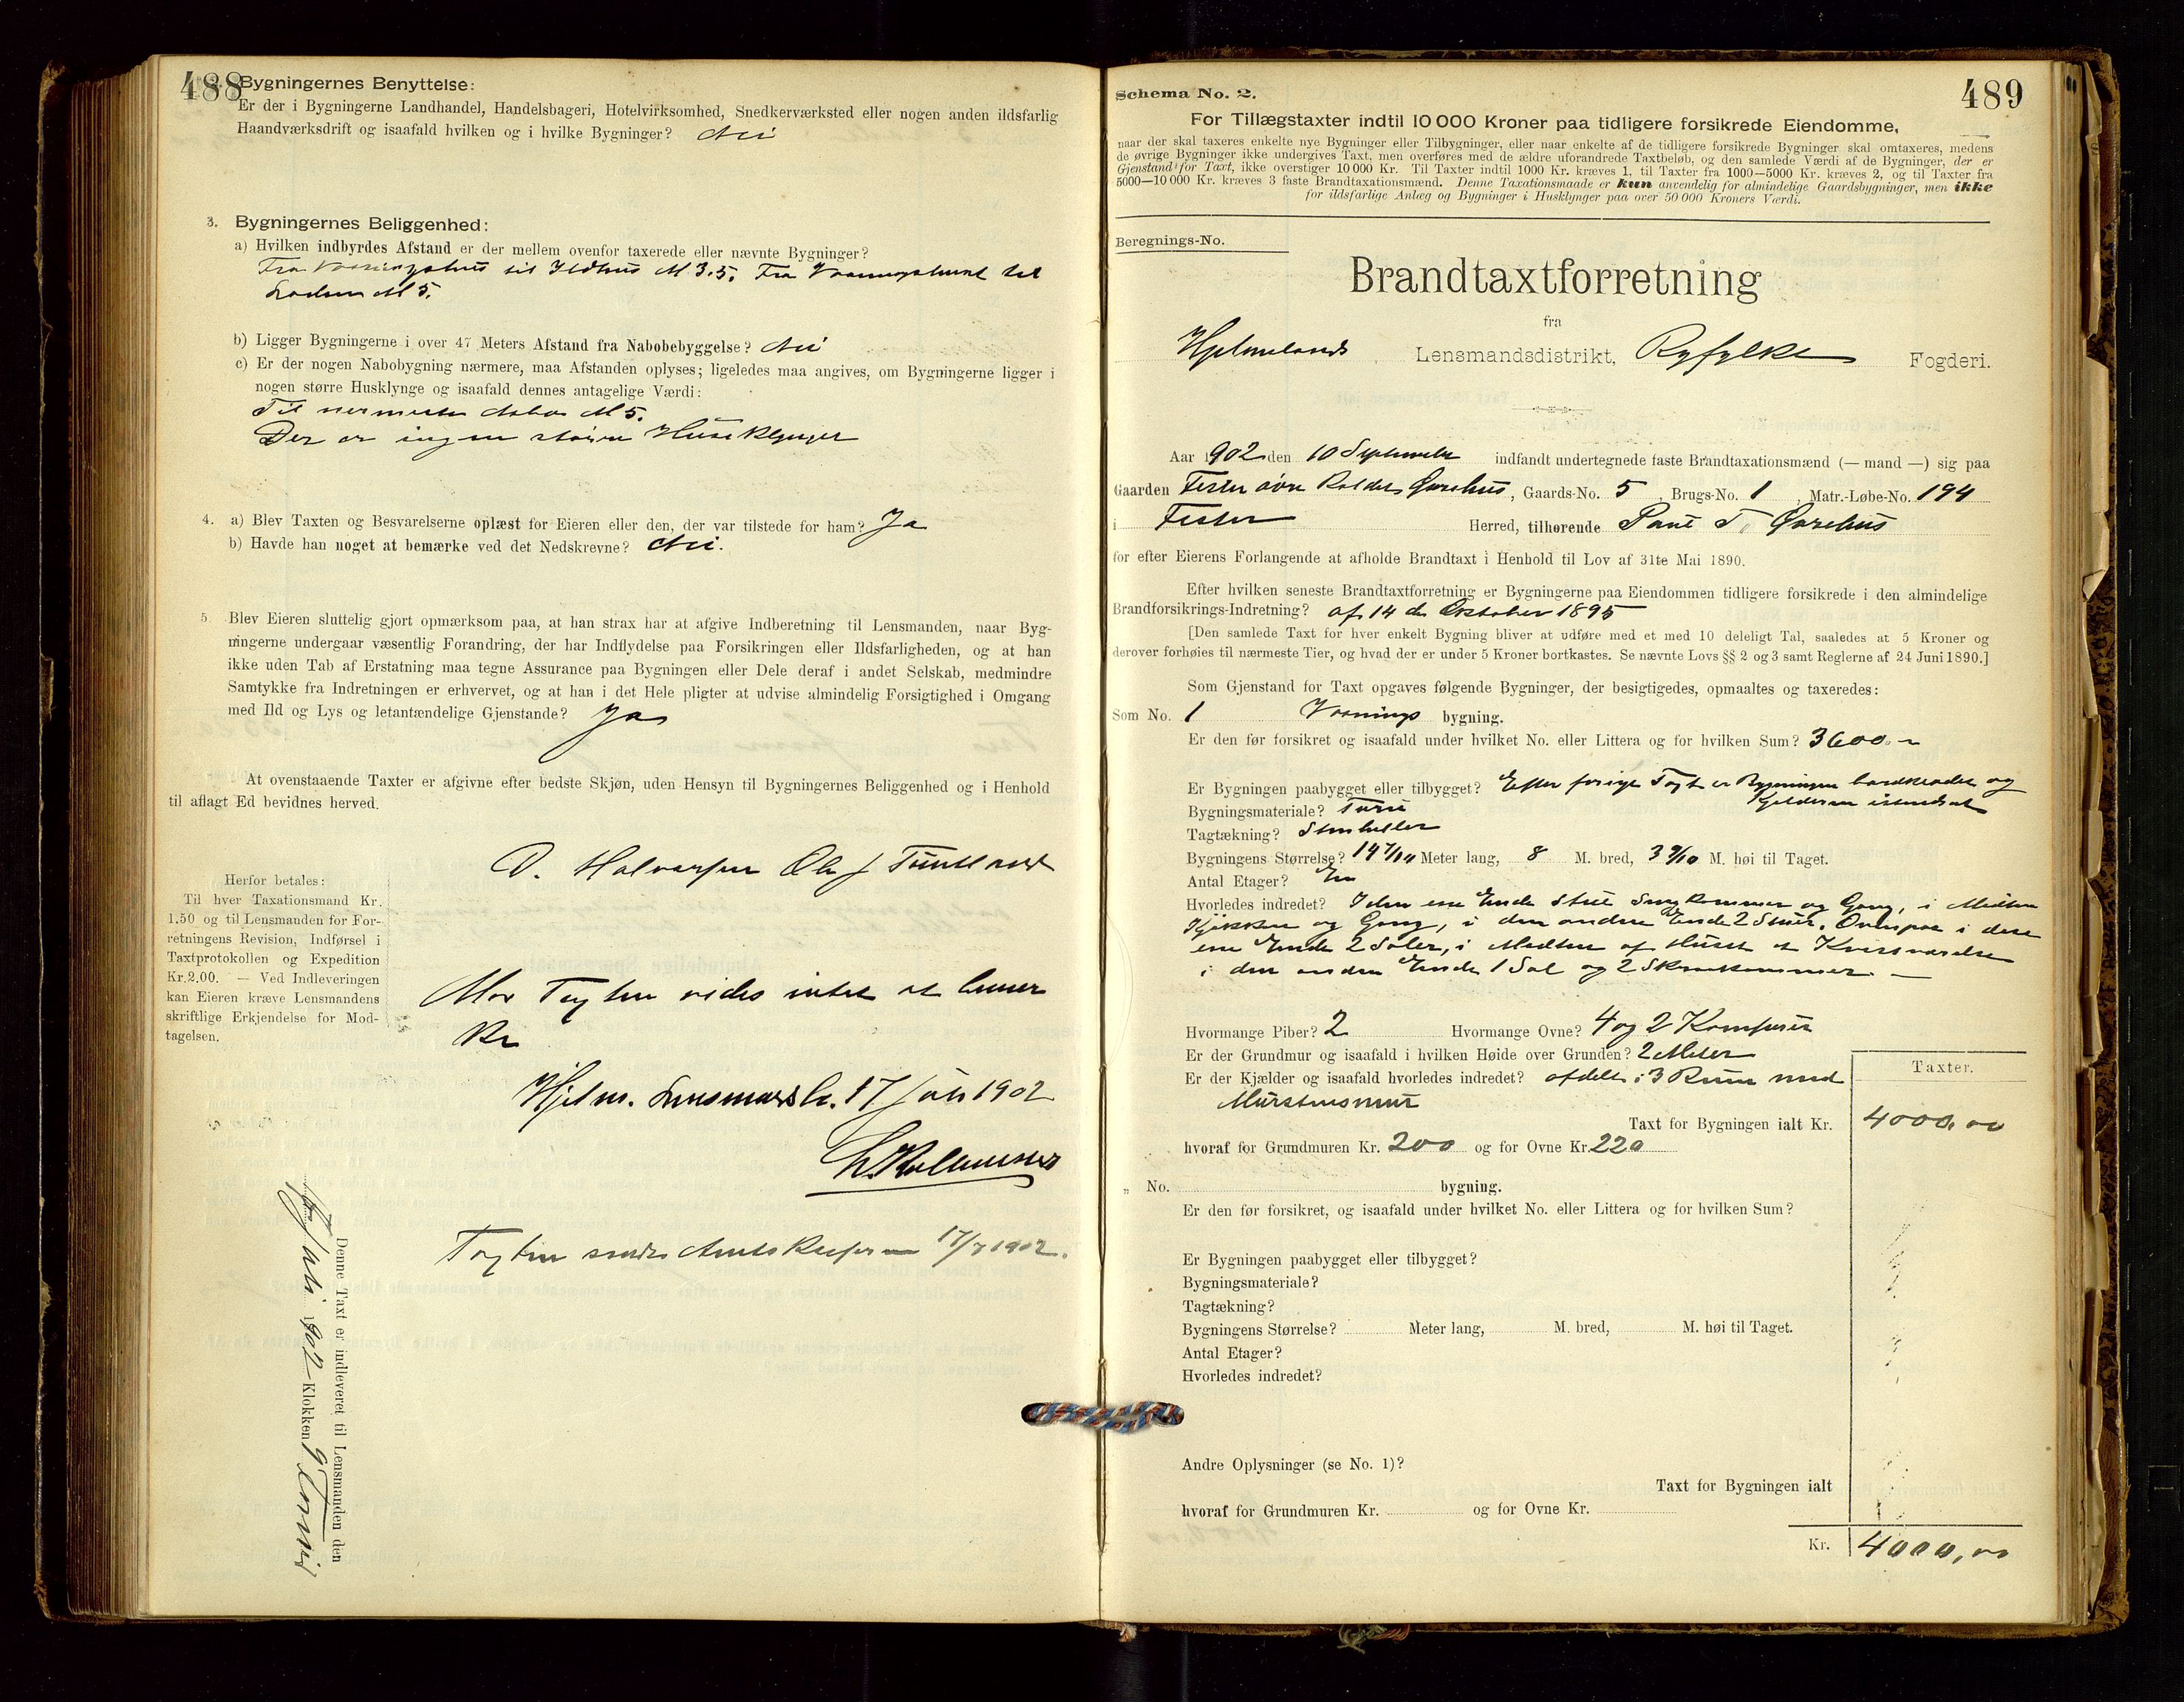 488 Bygningernes Benyttelse:
Er der i Bygningerne Landhandel, Handelsbageri, Hotelvirksomhed, Snedkerværksted eller nogen anden ildsfarlig
Haandværksdrift og isaafald hvilken og i hvilke Bygninger? Nei
3. Bygningernes Beliggenhed:
a) Hvilken indbyrdes Afstand er der mellem ovenfor taxerede eller nævnte Bygninger?
Fra Vaaningshus til Ildhus M 3.5. Fra Vaaningshuset til
Laden M 5.
b) Ligger Bygningerne i over 47 Meters Afstand fra Nabobebyggelse? Nei
c) Er der nogen Nabobygning nærmere, maa Afstanden oplyses; ligeledes maa angives, om Bygningerne ligger i
nogen større Husklynge og isaafald dennes antagelige Værdi:
Til nermeste Nabo M 5.
Der er ingen større Huseklynger
4. a) Blev Taxten og Besvarelserne oplæst for Eieren eller den, der var tilstede for ham? Ja
b) Havde han noget at bemærke ved det Nedskrevne? Nei.
5. Blev Eieren sluttelig gjort opmærksom paa, at han strax har at afgive Indberetning til Lensmanden, naar Byg-
ningerne undergaar væsentlig Forandring, der har Indflydelse paa Forsikringen eller Ildsfarligheden, og at han
ikke uden Tab af Erstatning maa tegne Assurance paa Bygningen eller Dele deraf i andet Selskab, medmindre
Samtykke fra Indretningen er erhvervet, og at han i det Hele pligter at udvise almindelig Forsigtighed i Omgang
med Ild og Lys og letantændelige Gjenstande? Ja
At ovenstaaende Taxter er afgivne efter bedste Skjøn, uden Hensyn til Bygningernes Beliggenhed og i Henhold
til aflagt Ed bevidnes herved.
D. Halvorsen Ola J Tuntland
Herfor betales:
Til hver Taxationsmand Kr.
1.50 og til Lensmanden for For-
retningens Revision, Indførsel i
Taxtprotokollen og Expedition
Kr. 2.00. — Ved Indleveringen
kan Eieren kræve Lensmandens
skriftlige Erkjendelse for Mod-
tagelsen.
Mod Taxten vides intet at bemer
ke
Hjelm. Lensmandsb. 17 Juli 1902
Taxten sendes Amtskassereren 17/7 1902.
Denne Taxt er indleveret til Lensmanden den
Juli 1902 Klokken 9
Schema No. 2. 489
For Tillægstaxter indtil 10 000 Kroner paa tidligere forsikrede Eiendomme,
naar der skal taxeres enkelte nye Bygninger eller Tilbygninger, eller naar enkelte af de tidligere forsikrede Bygninger skal omtaxeres, medens
de øvrige Bygninger ikke undergives Taxt, men overføres med de ældre uforandrede Taxtbeløb, og den samlede Værdi af de Bygninger, der er
Gjenstand for Taxt, ikke overstiger 10 000 Kr. Til Taxter indtil 1000 Kr. kræves 1, til Taxter fra 1000—5000 Kr. kræves 2, og til Taxter fra
5000—10 000 Kr. kræves 3 faste Brandtaxationsmænd. Denne Taxationsmaade er kun anvendelig for almindelige Gaardsbygninger, men ikke
for ildsfarlige Anlæg og Bygninger i Husklynger paa over 50 000 Kroners Værdi.
Beregnings-No.
Brandtaxtforretning
fra
Hjelmelands Lensmandsdistrikt, Ryfylke Fogderi.
Aar 1902 den 10 September indfandt undertegnede faste Brandtaxationsmænd (— mand —) sig paa
Gaarden Fister øvre, Gaards-No. 5, Brugs-No. 1, Matr.-Løbe-No. 194
i Fister Herred, tilhørende Paul T.
for efter Eierens Forlangende at afholde Brandtaxt i Henhold til Lov af 31te Mai 1890.
Efter hvilken seneste Brandtaxtforretning er Bygningerne paa Eiendommen tidligere forsikrede i den almindelige
Brandforsikrings-Indretning? af 14 de Oktober 1895
[Den samlede Taxt for hver enkelt Bygning bliver at udføre med et med 10 deleligt Tal, saaledes at 5 Kroner og
derover forhøies til nærmeste Tier, og hvad der er under 5 Kroner bortkastes. Se nævnte Lovs §§ 2 og 3 samt Reglerne af 24 Juni 1890.]
Som Gjenstand for Taxt opgaves følgende Bygninger, der besigtigedes, opmaaltes og taxeredes:
Som No. 1 Vaanings bygning.
Er den før forsikret og isaafald under hvilket No. eller Littera og for hvilken Sum? 3600.–
Er Bygningen paabygget eller tilbygget? Efter forige Taxt er Bygningen bordklædet og
Kjelderen istandsat
Bygningsmateriale? Furu
Tagtækning? Stenheller
Bygningens Størrelse? 14 7/10 Meter lang, 8 M. bred, 3 9/10 M. høi til Taget.
Antal Etager? En
Hvorledes indredet? I den ene Ende Stue Sengkammer og Gang, i Midten
Kjøkken og Gang, i den anden Ende 2 Stuer. Ovenpaa i den
ene Ende 2 Saler, i Midten af Huset et Kvistværelse
i den anden Ende 1 Sal og 2 Skraakammer. —
Hvormange Piber? 2 Hvormange Ovne? 4 og 2 Komfurer
Er der Grundmur og isaafald i hvilken Høide over Grunden? 2 Meter
Er der Kjælder og isaafald hvorledes indredet? afdelt i 3 Rum med
Murstensmur
Taxter.
Taxt for Bygningen ialt Kr. 4000,00
hvoraf for Grundmuren Kr. 200 og for Ovne Kr. 220
„ No. bygning.
Er den før forsikret, og isaafald under hvilket No. eller Littera og for hvilken Sum?
Er Bygningen paabygget eller tilbygget?
Bygningsmateriale?
Tagtækning?
Bygningens Størrelse? Meter lang, M. bred, M. høi til Taget.
Antal Etager?
Hvorledes indredet?
Andre Oplysninger (se No. 1)?
Taxt for Bygningen ialt
hvoraf for Grundmuren Kr. og for Ovne Kr.
Kr. 4000,00